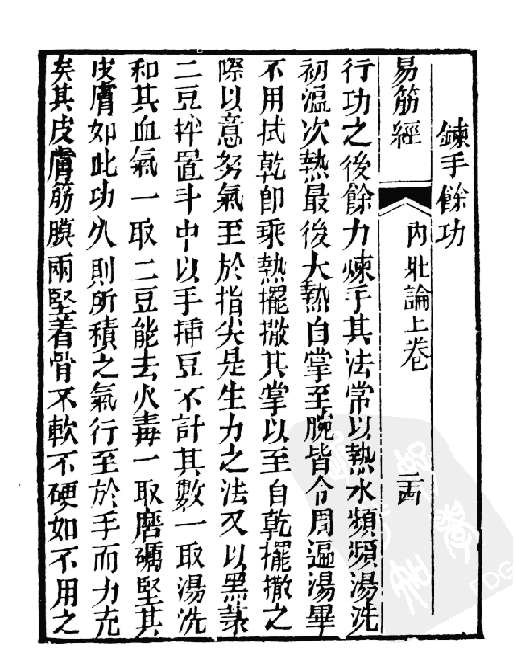 鍊手餘功
易筋經 內壯論上卷 二十四
行功之後餘力煉手其法常以熱水頻頻湯洗
初溫次熱最後大熱自掌至腕皆令周遍湯畢
不用拭乾即乘熱擺撒其掌以至自乾擺撒之
際以意努氣至於指尖是生力之法又以黑菉
二豆拌置斗中以手揷豆不計其數一取湯洗
和其血氣一取二豆能去火毒一取磨礪堅其
皮膚如此功久則所積之氣行至於手而力充
矣其皮膚筋膜兩堅着骨不軟不硬如不用之